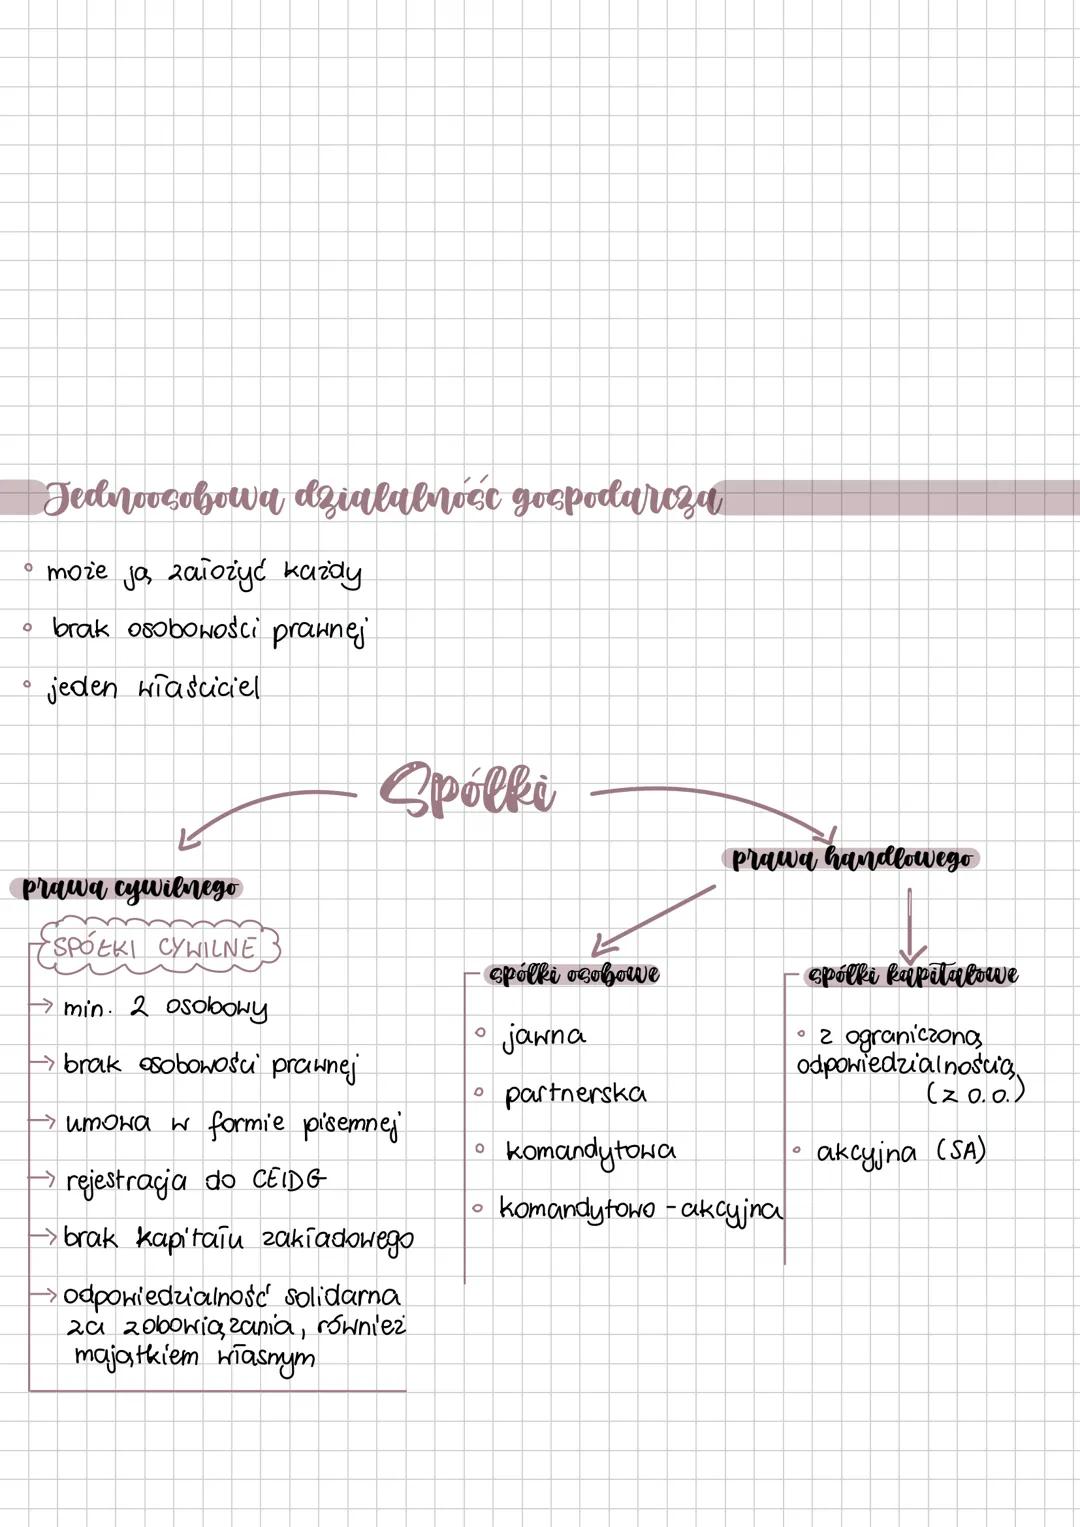 Jednoosobowa działalność gospodarcza
może ją założyć każdy
brak osobowości prawnej
jeden właściciel
Spółki
prawa cywilnego
SPÓŁKI CYWILNE
min. 2 osobowy
brak osobowości prawnej
umowa w formie pisemnej
rejestracja do CEIDG
brak kapitału zakładowego
odpowiedzialność solidarna
za zobowiązania, również
majątkiem własnym
prawa handlowego
spółki osobowe
jawna
partnerska
komandytowa
komandytowo - akcyjna
spółki kapitałowe
z ograniczoną
odpowiedzialnością
(z o.o.)
akcyjna (SA)